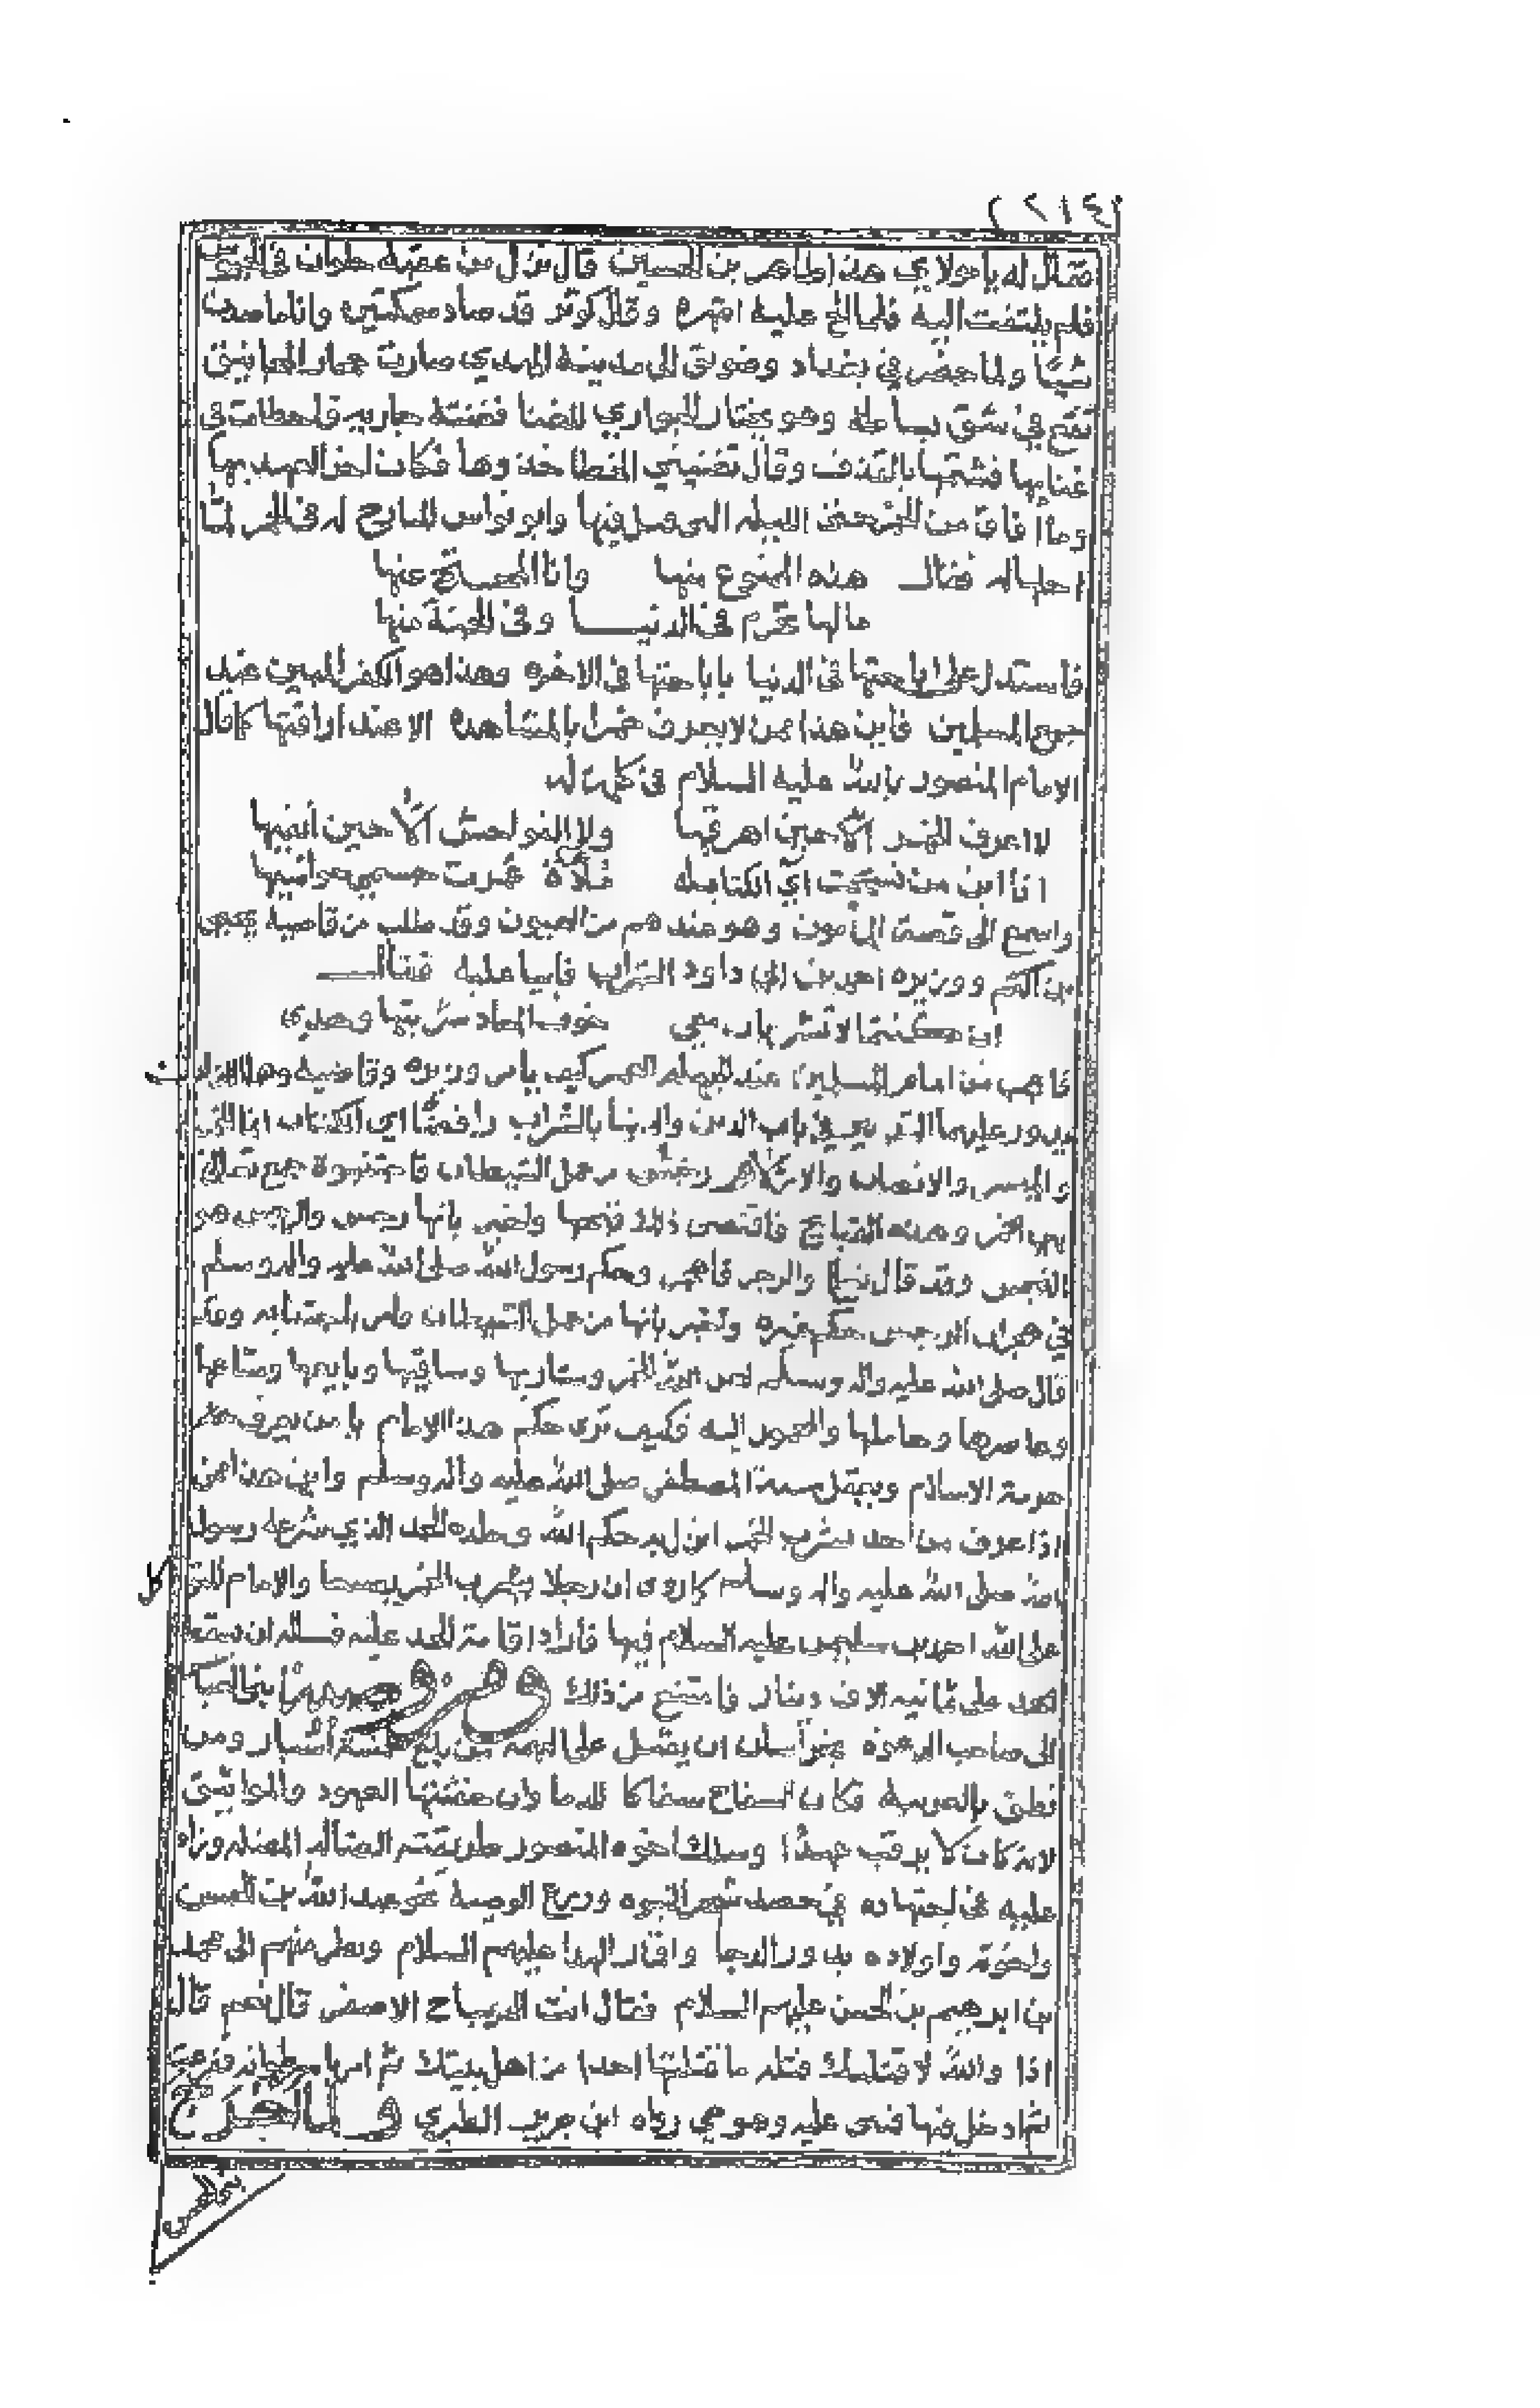 فقال له يا مولاي هذا طاهر بن الحسين قال نزل من عقبة حلوان في
فلم يلتفت اليه فلما الح عليه انتهره وقال كوثر قد صاد سمكتين وانا ما صدت
شيئا ولما حضر في بغداد وضويق الى مدينة المهدي صارت حجار المجانيق
تقع في شق بساطه وهو يختار الجواري للغنا فغنته جارية
غنائها فشتمها بالقذف وقال تغنيني الخطا خذوها فكان اخر العهد بها
وما افاق من الخمر حتى الليلة التي قتل فيها وابو نواس المادح له في الخمر لما
احلها له فقال هذه الممنوع منها وانا المحتج عنها
مالها تحرم في الدنيا وفي الجنة منها
فاستدل على اباحتها في الدنيا باباحتها في الاخرة وهذا هو الكفر المبين عند
جميع المسلمين فاين هذا ممن لا يعرف خمرا بالمشاهدة الا عند اراقتها كما قال
الامام المنصور بالله عليه السلام في كلمة له
لا اعرف الخمر الا حين اهرقها ولا الفواحش الا حين انفيها
انا ابن من نسجت آي الكتاب له
واسمع الى قصة المأمون وهو عندهم من العيون وقد طلب من قاضيه يحيى
بن اكثم ووزيره احمد بن ابي داود الشراب فابيا عليه فقال
ان كنتما لا تشربان معي خوف العباد شربتها وحدي
فاعجب من امام المسلمين عند الجهلة العمين كيف يامر وزيره وقاضيه وهما اللذان
يدور عليهما التدبير في باب الدين والدنيا بالشراب رافضا آي الكتاب انما الخمر
والميسر والانصاب والازلام رجس من عمل الشيطان فاجتنبوه جمع تعالى
بين الخمر وهذه القبائح واقتضى ذلك قبحها واخبر بانها رجس والرجس هو
النجس وقد قال تعالى والرجز فاهجر وحكم رسول الله صلى الله عليه واله وسلم
في هجران الرجس حكم غيره وتخبر بانها من عمل الشيطان وامر باجتنابه وقد
قال صلى الله عليه واله وسلم لعن الله الخمر وشاربها وساقيها وبايعها ومبتاعها
وعاصرها وحاملها والمحمول اليه وكيف ترى حكم هذا الامام يا من يعرف
حرمة الاسلام ويعقل سنة المصطفى صلى الله عليه واله وسلم واين هذا ممن
اذا عرف من احد بشرب الخمر انزل به حكم الله وجلده الحد الذي شرعه رسول
الله صلى الله عليه واله وسلم كما روي ان رجلا شرب الخمر بصعدا والامام المتوكل
على الله احمد بن سليمن عليه السلام فيها فاراد اقامة الحد عليه فساله ان
الحد على ثمانية الاف دينار فامتنع من ذلك
الى صاحب الدعوة بخراسان ان يقتل على التهمة من بلغ خمسة اشبار ومن
نطق بالعربية وكان السفاح سفاكا للدما وان خفتتها العهود والمواثيق
لانه كان لا يرقب عهدا وسلك اخوه المنصور طريقته الضاله المضله وزاد
عليه في اجتهاده في حصد شجر النبوة ودرج الوصية نحو عبد الله بن الحسن
واخوته واولاده بدور الدجا واقمار الهدا عليهم السلام ونظر منهم الى محمد
بن ابرهيم بن الحسن عليهم السلام فقال انت الديباج الاصفر قال نعم قال
اذا والله لاقتلنك قتله ما قتلتها احدا من اهل بيتك ثم امر باسطوانة
ثم ادخل فيها فبنى عليه وهو حي رواه ابن جرير الطبري ولما خرج